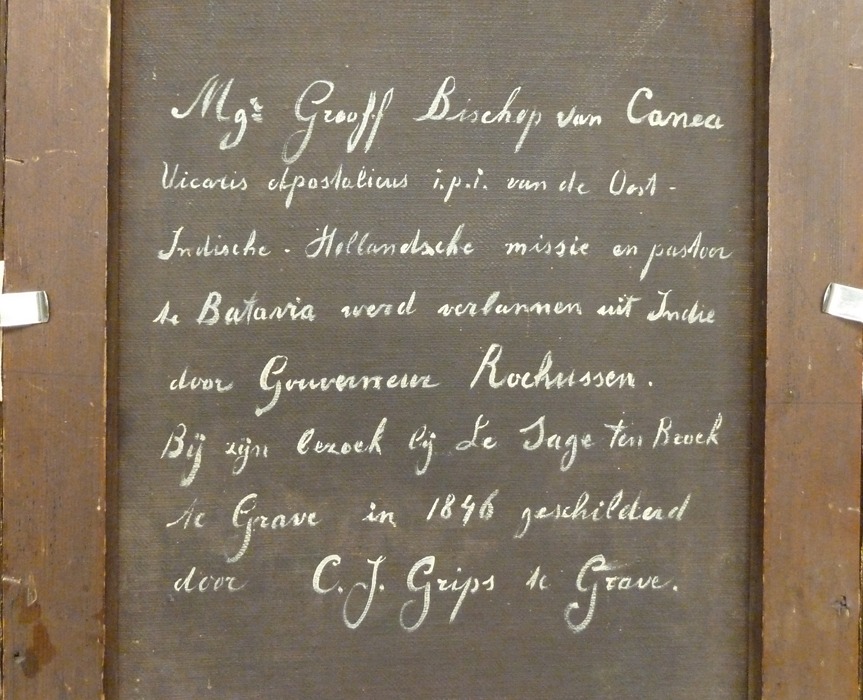 Mgr Grooff Bischop van Canea
Vicaris Apostolicus i.p.i. van de Oost-
Indische - Hollandsche missie en pastoor
te Batavia werd verbannen uit Indie
door Gouverneur Rochussen.
Bij zijn bezoek bij Le Sage ten Broek
te Grave in 1846 geschilderd
door C. J. Grips te Grave.